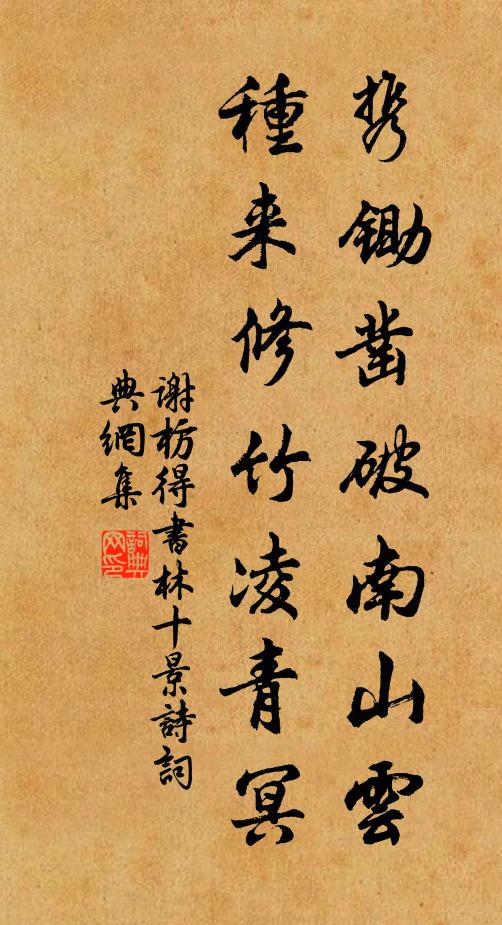 携鋤鑿破南山雲
種来修竹凌青冥
謝枋得書林十景詩詞
典網集
詞典网印